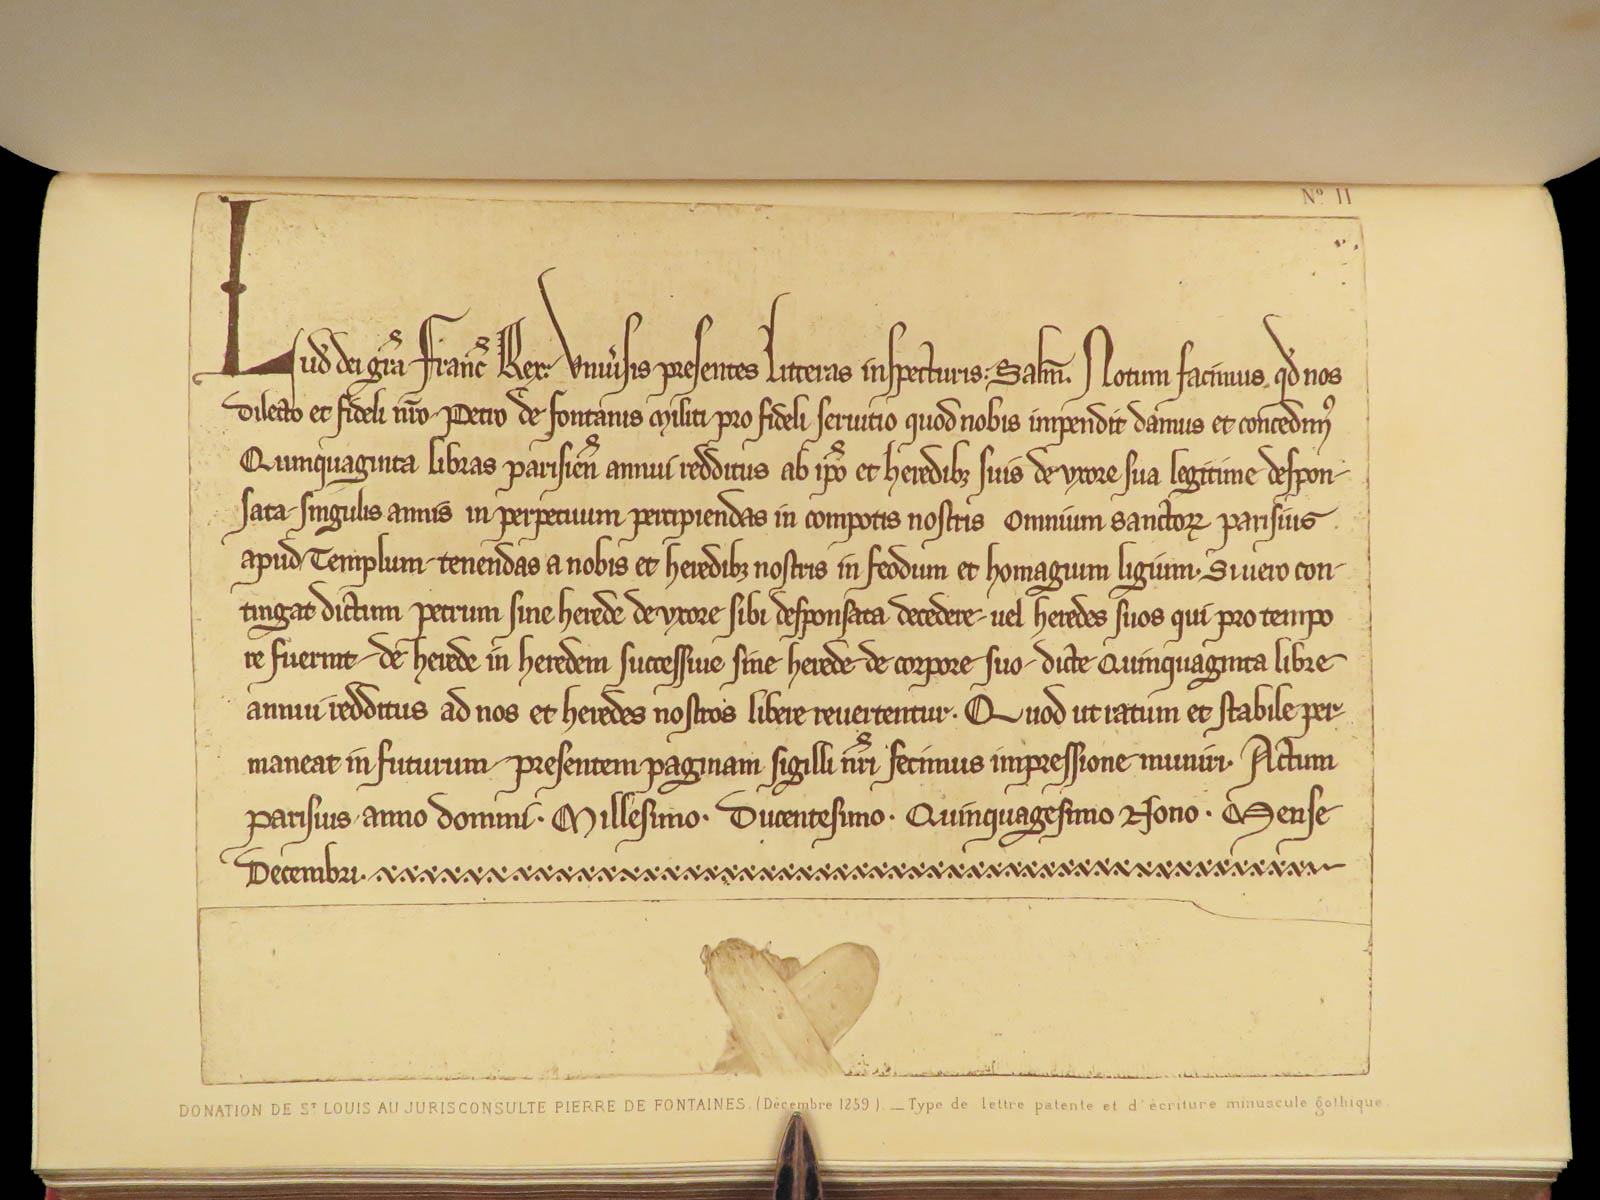 Nº II
Lud dei gra Franc Rex. Vniusis presentes litteras inspecturis. Salm. Notum facimus qd nos
dilecto et fideli nro Petro de fontanis militi pro fideli seruitio quod nobis impendit damus et concedim9
Quinquaginta libras parisien annui redditus ab ipo et heredibz suis de vxore sua legitime despon-
sata singulis annis in perpetuum percipiendas in compotis nostris Omnium sanctorz parisius
apud Templum tenendas a nobis et heredibz nostris in feodum et homagium ligium. Si uero con-
tingat dictum petrum sine herede de vxore sibi desponsata decedere uel heredes suos qui pro tempo
re fuerint de herede in heredem successiue sine herede de corpore suo dicte Quinquaginta libre
annui redditus ad nos et heredes nostros libere reuertentur. Quod ut ratum et stabile per-
maneat in futurum presentem paginam sigilli nri fecimus impressione muniri. Actum
parisius anno domini. Millesimo. Ducentesimo. Quinquagesimo Nono. Mense
Decembri.
DONATION DE ST LOUIS AU JURISCONSULTE PIERRE DE FONTAINES. (Décembre 1259). — Type de lettre patente et d'écriture minuscule gothique.